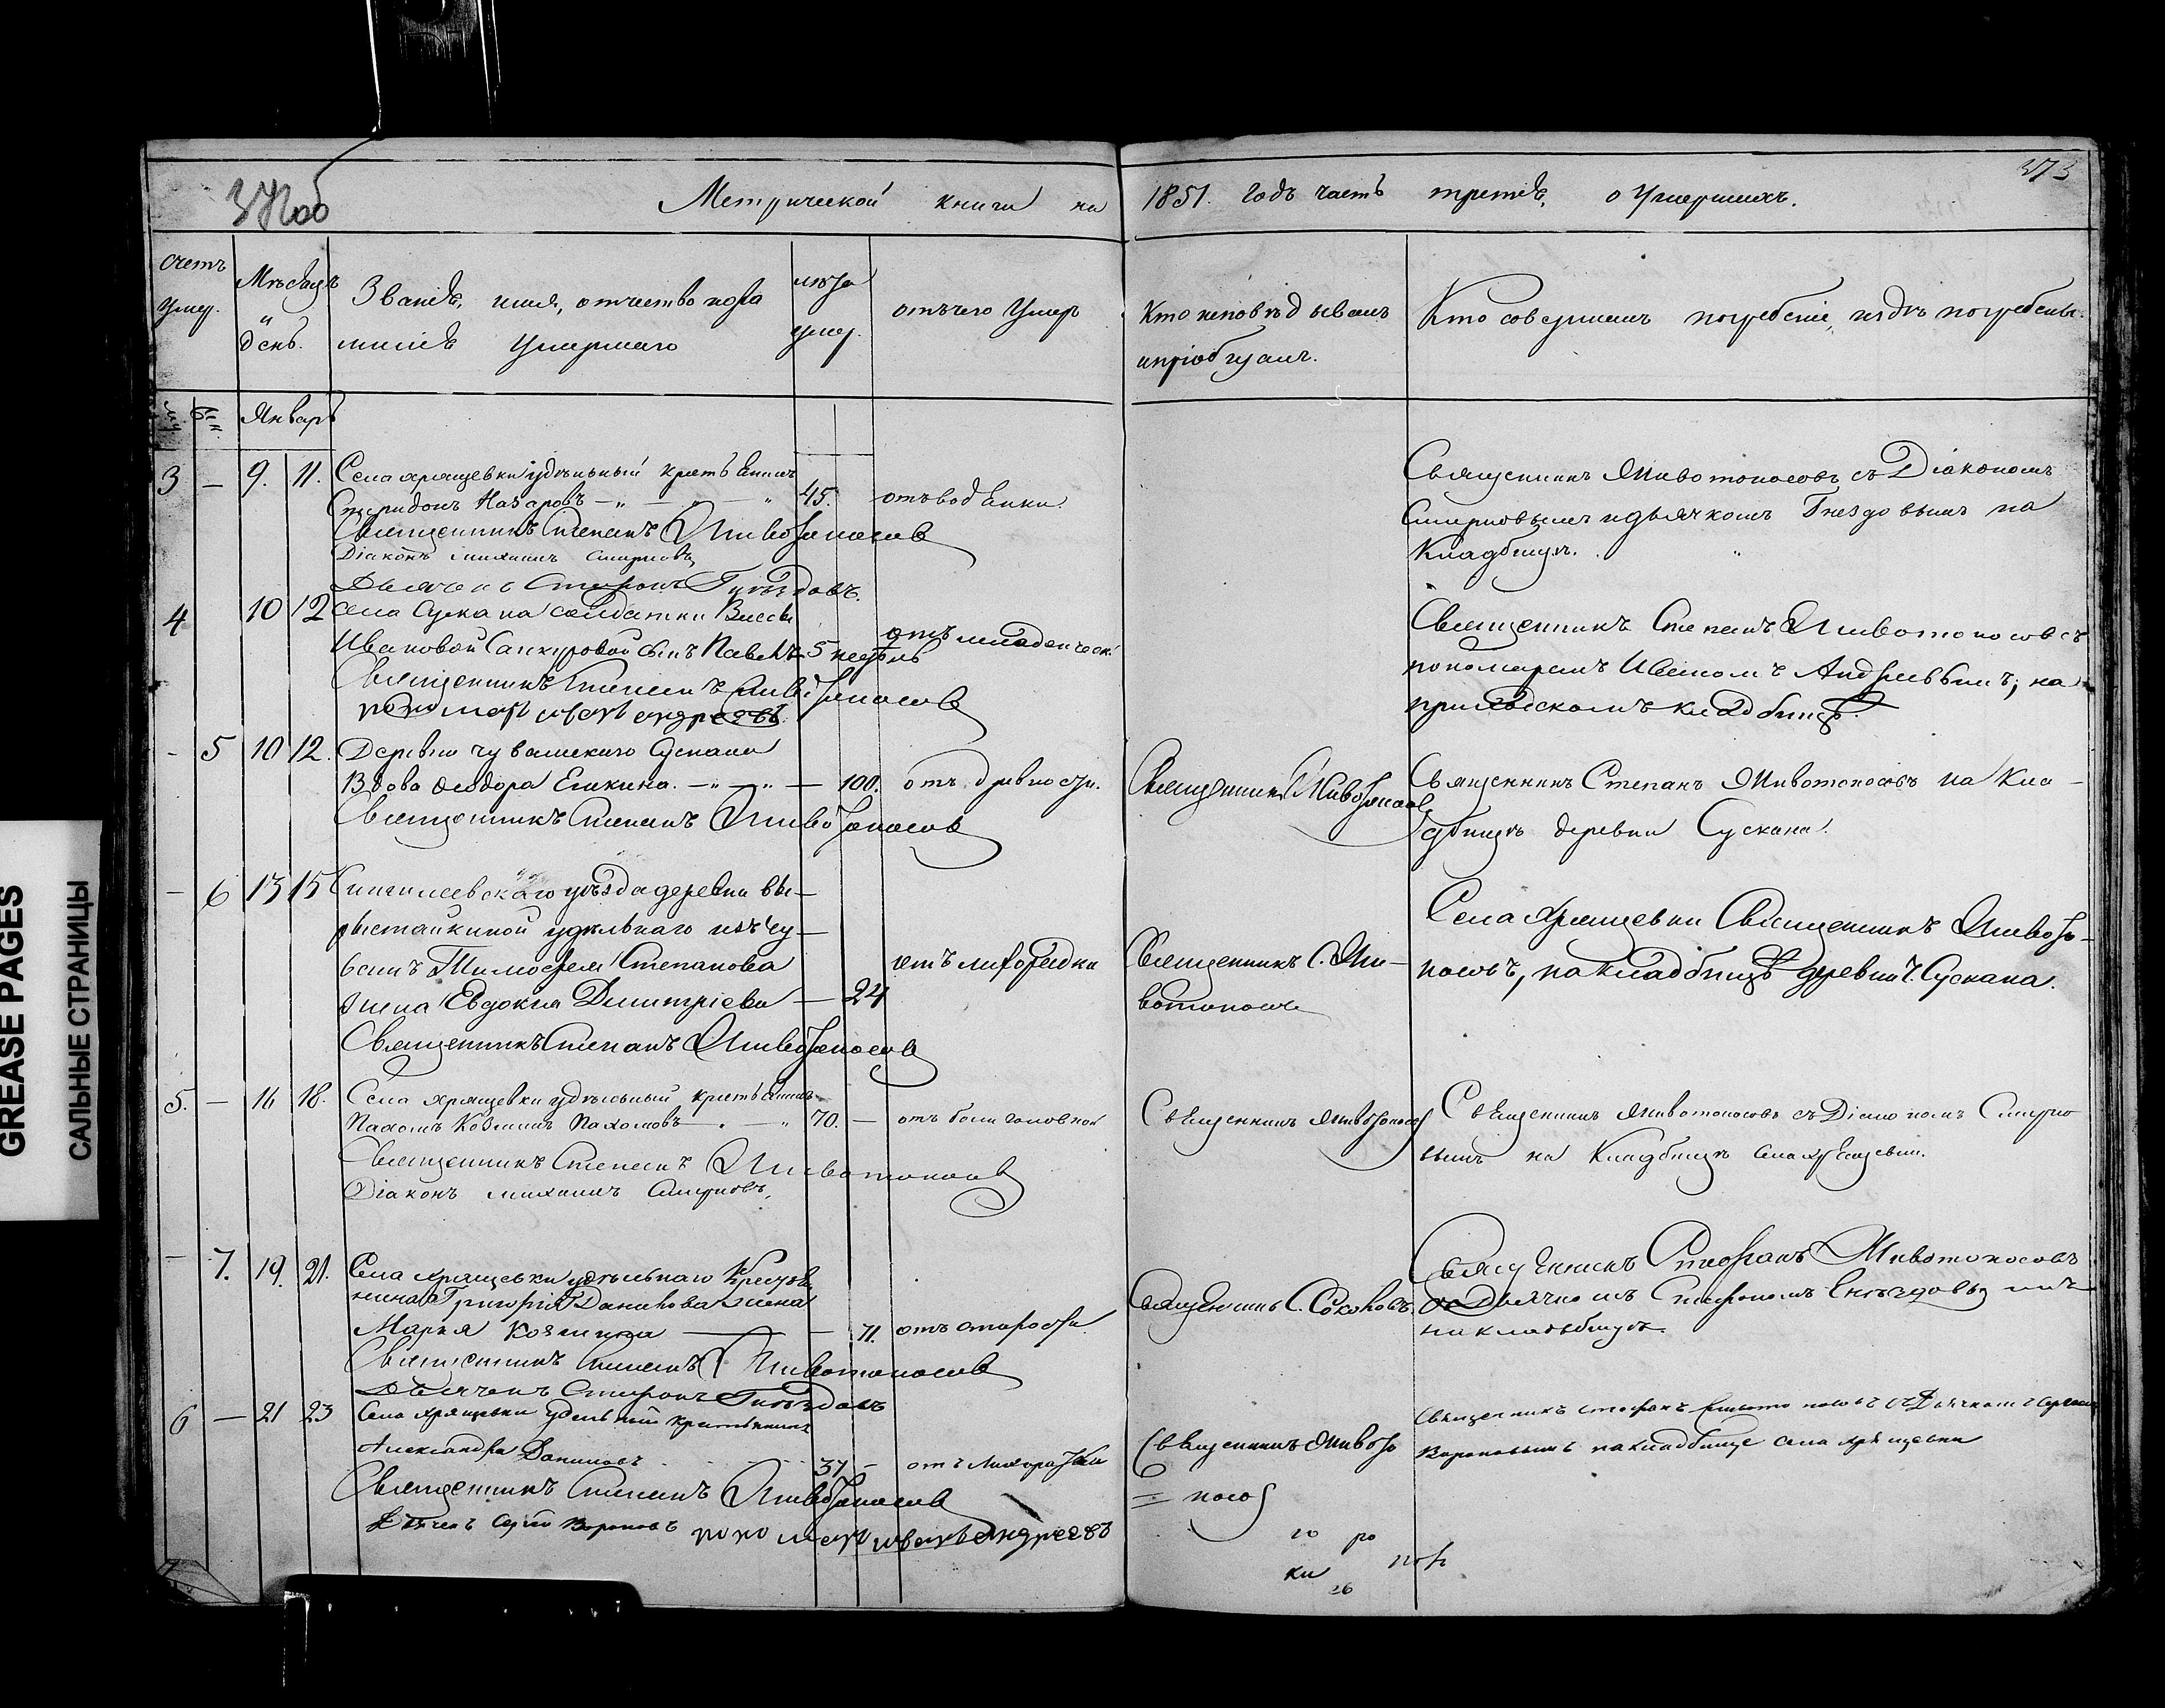 GREASE PAGES
САЛЬНЫЕ СТРАНИЦЫ
Метрической книги на 1851. годъ часть третія, о Умершихъ.
счетъ умер.
Мѣсяцъ и день.
Званіе, имя, отчество и фамилія умершаго
лѣта умер.
отъ чего Умеръ
Кто исповѣдывалъ и пріобщалъ.
Кто совершалъ погребеніе, и гдѣ погребены.
Январь
3 — 9. 11. Села хрящевки удѣльный крестьянинъ
Спиридонъ Назаровъ — 45. отъ водянки.
Священникъ Степанъ Животоносовъ
Діаконъ михаилъ смирновъ
Дьячекъ Стефанъ Гнѣздовъ.
Священникъ Животоносовъ съ Діакономъ
Смирновымъ и дьячкомъ Гнездовымъ на
Кладбищѣ.
4 10 12 села Сускана солдатки Вассы
Ивановой сынъ Павелъ 5 недѣль отъ младенческ.
Священникъ Степанъ Животоносовъ
пономарь иванъ андреевъ.
Священникъ Степанъ Животоносовъ съ
пономаремъ Иваномъ Андреевымъ, на
приходскомъ кладбищѣ.
- 5 10 12. Деревни чувашскаго Сускана
Вдова Ѳеодора Емкина. — 100. отъ древности.
Священникъ Степанъ Животоносовъ
Священникъ Животоносовъ
Священникъ Степанъ Животоносовъ на кла-
дбищѣ деревни Сускана.
- 6 13 15 Сингилеевскаго уѣзда деревни вы-
рыстайкиной удѣльнаго изъ чу-
вашъ Тимофея Степанова
жена Евдокія Димитріева — 24 отъ лихорадки
Священникъ Степанъ Животоносовъ
Священникъ С. Жи-
вотоносовъ
Села Хрящевки Священникъ Живото-
носовъ, на кладбищѣ деревни Ч. Сускана.
5. — 16 18. Села хрящевки удѣльный крестьянинъ
Пахомъ Козминъ Пахомовъ — 70. — отъ боли головной
Священникъ Степанъ Животоносовъ
Діаконъ михаилъ Смирновъ,
Священникъ Животоносов
Священникъ Животоносовъ съ Діакономъ Смирно
вымъ на Кладбищѣ села хрящевки.
— 7. 19. 21. Села хрящевки удѣльнаго крестья
нина Григорія Данилова жена
Марья Козмина — 71. отъ старости.
Священникъ Степанъ Животоносовъ
Дьячекъ Стефанъ Гнѣздовъ
Священникъ С. Соколовъ.
Священникъ Стефанъ Животоносовъ
съ Дьячкомъ Стефаномъ Гнѣздовымъ
на кладьбищѣ.
6 — 21 23 Села хрящевки удельный крестьянинъ
Александра Даниловъ 37 — отъ лихорадки
Священникъ Степанъ Животоносовъ
Дьячекъ Сергей Вороновъ пономарь иванъ андреевъ
Священникъ Живото
= носов
Священникъ стефанъ Животоносовъ съ Дьячкомъ Сергеем
Вороновымъ на кладбище села хрящевки
го ро
ки